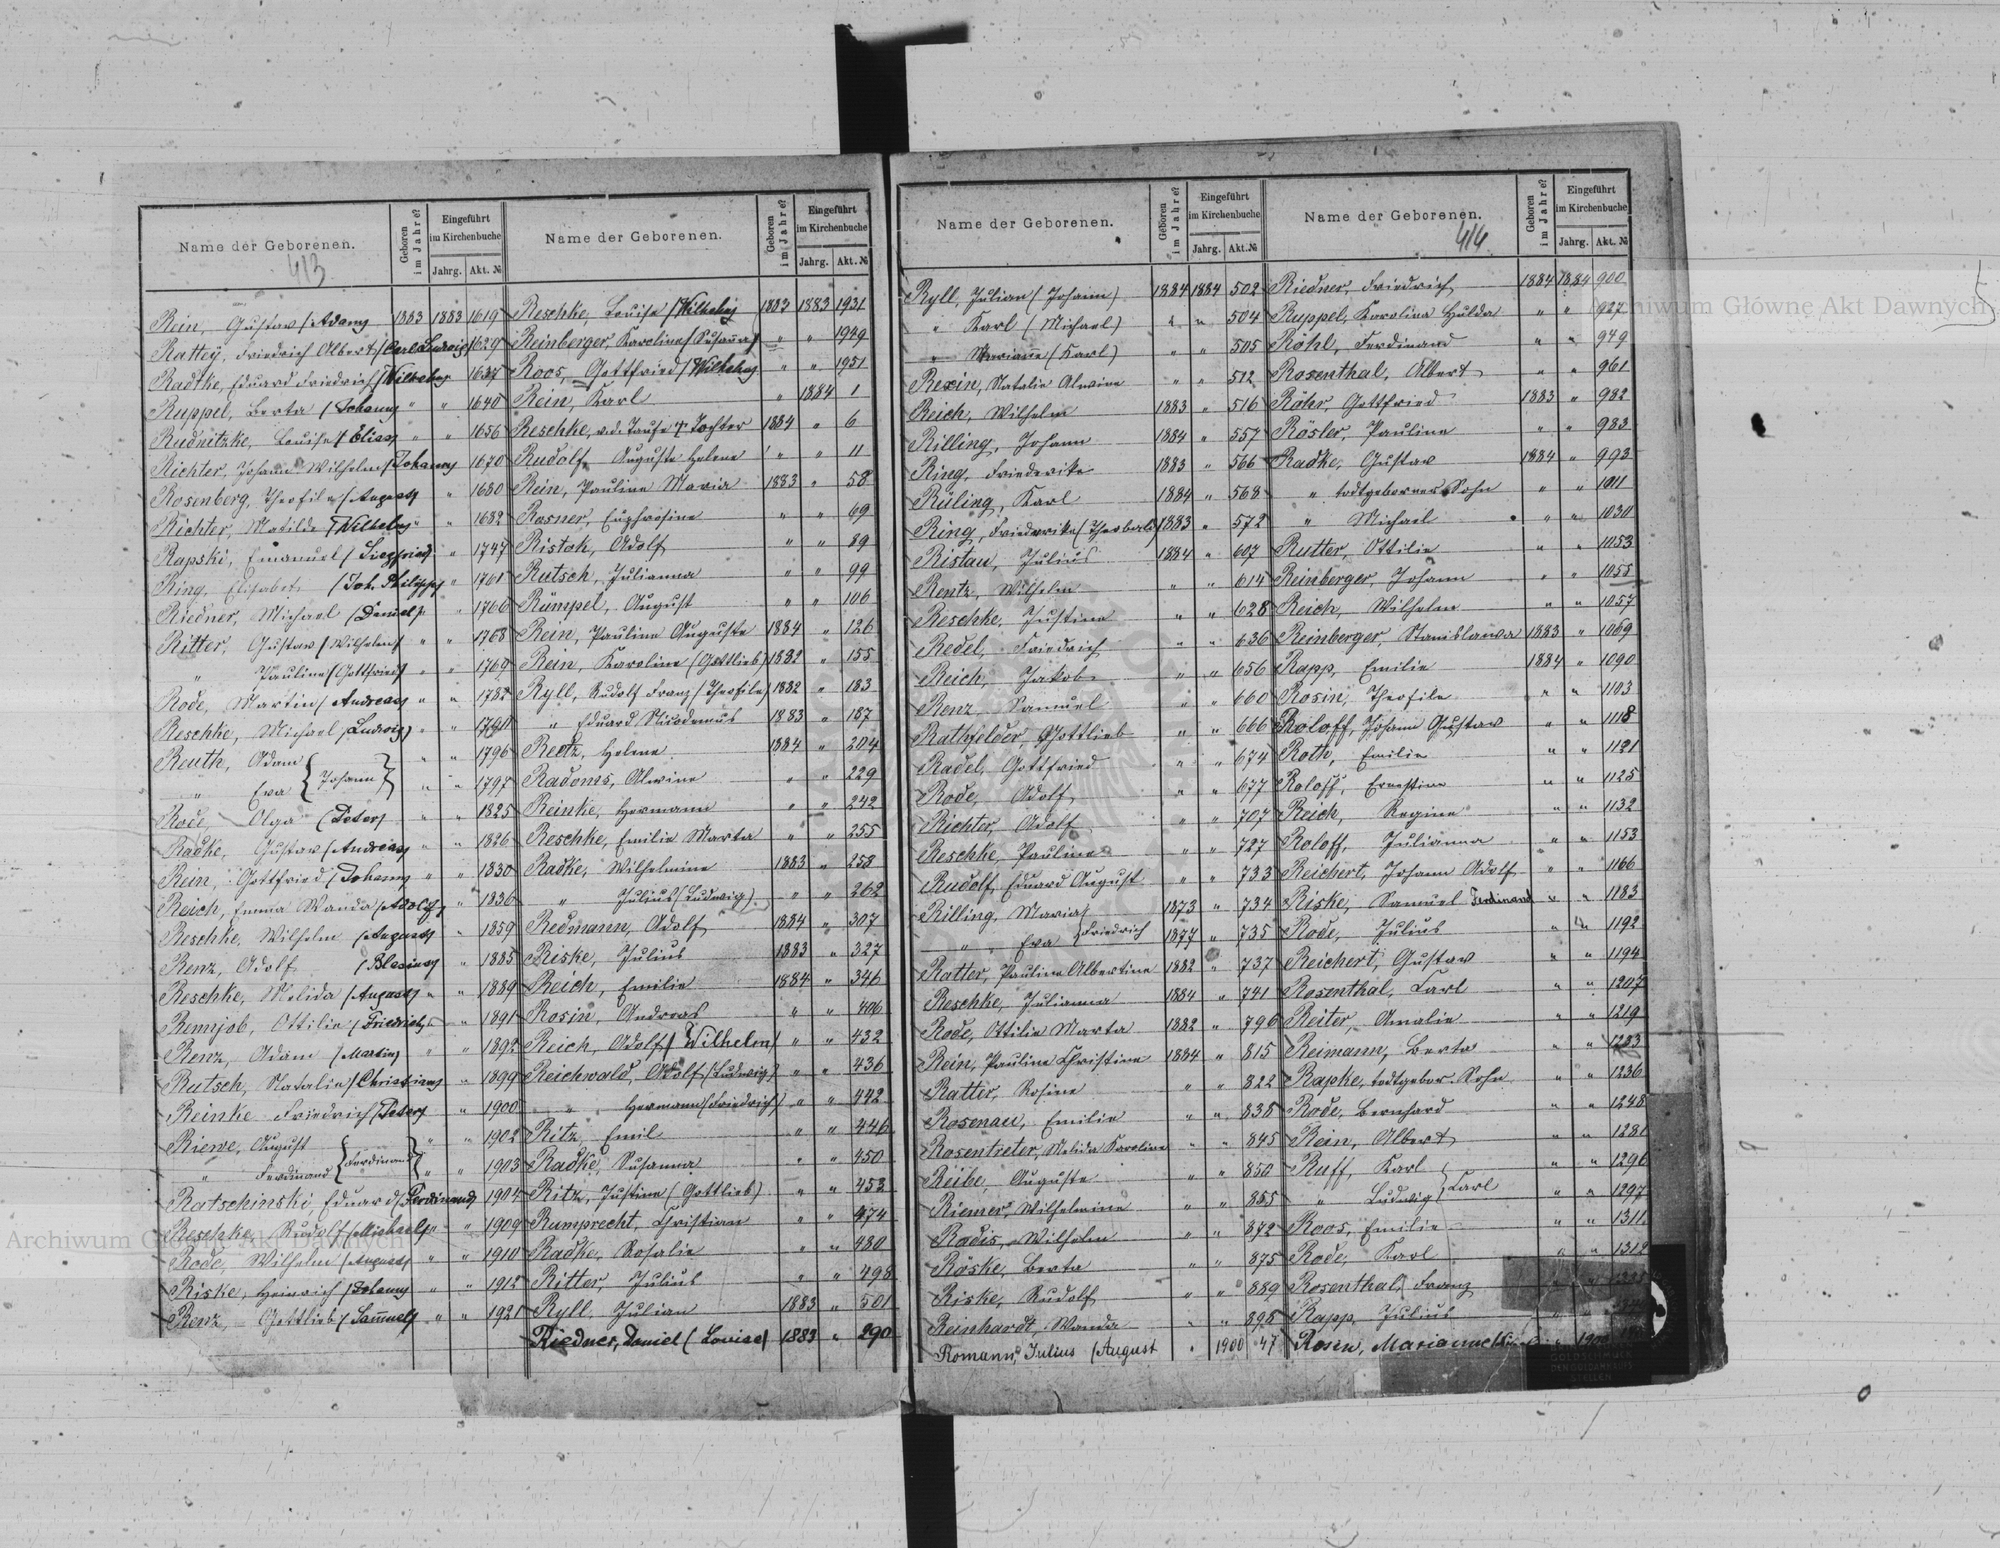 Name der Geborenen. Geboren im Jahre? Eingeführt im Kirchenbuche Jahrg. Akt. №
413
Rein, Gustav (Adam) 1883 1883 1619
Rattey, Friedrich Albert (Carl Ludwig) 1629
Radtke, Eduard Friedrich (Wilhelm) 1637
Ruppel, Berta (Johann) " " 1640
Rudnitzke, Louise (Elias) " " 1656
Richter, Johann Wilhelm (Johann) 1670
Rosenberg, Theofile (August) " 1680
Richter, Matilde (Wilhelm) " " 1682
Rapski, Emanuel (Siegfried) " 1747
Ring, Elisabet (Joh. Philipp) " 1761
Riedner, Michael (Daniel) " 1766
Ritter, Gustav (Wilhelm) " " 1768
" Pauline (Gottfried) " " 1769
Rode, Martin (Andreas) " " 1787
Reschke, Michael (Ludwig) " "
Reuth, Adam " " 1796
" Eva (Johann) " " 1797
Rode, Olga (Peter) " " 1825
Radke, Gustav (Andreas) " " 1826
Rein, Gottfried (Johann) " " 1830
Reich, Emma Wanda (Adolf) " 1836
Reschke, Wilhelm (August) " 1859
Renz, Adolf (Blasius) " 1885
Reschke, Melida (August) " " 1889
Remjob, Ottilie (Friedrich) " 1891
Renz, Adam (Martin) " " 1892
Rutsch, Natalie (Christian) " 1899
Reinke Friedrich (Peter) " 1900
Riewe, August " " 1902
" Ferdinand (Ferdinand) " " 1903
Ratschinski, Eduard (Ferdinand) 1904
Reschke, Rudolf (Michael) " " 1909
Rode, Wilhelm (August) " " 1910
Riske, Heinrich (Johann) " " 1912
Renz, Gottlieb (Samuel) " " 1921
Name der Geborenen. Geboren im Jahre? Eingeführt im Kirchenbuche Jahrg. Akt. №
Reschke, Louise (Wilhelm) 1883 1883 1931
Reinberger, Karoline (Susanna) " " 1949
Roos, Gottfried (Wilhelm) " " 1951
Rein, Karl " 1884 1
Reschke, v.d. Taufe † Tochter 1884 " 6
Rudolf, Auguste Helene " " 11
Rein, Pauline Maria 1883 " 58
Rosner, Euphrosine " " 69
Ristok, Adolf " " 89
Rutsch, Julianna " " 99
Rümpel, August " " 106
Rein, Pauline Auguste 1884 " 126
Rein, Karoline (Gottlieb) 1882 " 155
Ryll, Rudolf Franz (Theofile) 1882 " 183
" Eduard Nicodemus 1883 " 187
Reetz, Helene 1884 " 204
Radoms, Alwine " " 229
Reinke, Hermann " " 242
Reschke, Emilie Marta " " 255
Radke, Wilhelmine 1883 " 258
" Julius (Ludwig) " " 262
Redmann, Adolf 1884 " 307
Riske, Julius 1883 " 327
Reich, Emilie 1884 " 346
Rosin, Andreas " " 406
Reich, Adolf (Wilhelm) " " 432
Reichwald, Adolf (Ludwig) " " 436
" Hermann (Friedrich) " " 442
Ritz, Emil " " 446
Radke, Susanna " " 450
Ritz, Justine (Gottlieb) " " 453
Rumprecht, Christian " " 474
Radke, Rosalie " " 480
Ritter, Julius " " 498
Ryll, Julian 1883 " 501
Riedner, Daniel (Louise) 1883 " 290
Name der Geborenen. Geboren im Jahre? Eingeführt im Kirchenbuche Jahrg. Akt. №
Ryll, Julian (Johann) 1884 1884 502
" Karl (Michael) " " 504
" Marianne (Karl) " " 505
Rexin, Natalie Alwine " " 512
Reich, Wilhelm 1883 " 516
Rilling, Johann 1884 " 557
Ring, Friederike 1883 " 566
Rüling, Karl 1884 " 568
Ring, Friederike (Theobald) 1883 " 572
Ristau, Julius 1884 " 607
Rentz, Wilhelm " " 614
Reschke, Justine " " 628
Redel, Friedrich " " 636
Reich, Jakob " " 656
Renz, Samuel " " 660
Rathfelder, Gottlieb " " 666
Radel, Gottfried " " 674
Rode, Adolf " " 677
Richter, Adolf " " 707
Reschke, Pauline " " 727
Rudolf, Eduard August " " 733
Rilling, Maria 1873 " 734
" Eva (Friedrich 1877 " 735
Ratter, Pauline Albertine 1882 " 737
Reschke, Julianna 1884 " 741
Rode, Ottilie Marta 1882 " 796
Rein, Pauline Christine 1884 " 815
Ratter, Rosine " " 822
Rosenau, Emilie " " 838
Rosentreter, Melida Karoline " " 845
Reibe, Auguste " " 850
Riemer, Wilhelmine " " 855
Radis, Wilhelm " " 872
Röske, Berta " " 875
Riske, Rudolf " " 889
Reinhardt, Wanda " " 898
Romann, Julius (August " 1900 47
Name der Geborenen. Geboren im Jahre? Eingeführt im Kirchenbuche Jahrg. Akt. №
414
Riedner, Friedrich 1884 1884 900
Ruppel, Karolina Hulda " " 927
Röhl, Ferdinand " " 949
Rosenthal, Albert " " 961
Röhr, Gottfried 1883 " 982
Rösler, Pauline " " 983
Radke, Gustav 1884 " 993
" todtgeborner Sohn " " 1011
" Michael " " 1030
Rutter, Ottilie " " 1053
Reinberger, Johann " " 1055
Reich, Wilhelm " " 1057
Reinberger, Stanislawa 1883 " 1069
Rapp, Emilie 1884 " 1090
Rosin, Theofile " " 1103
Roloff, Johann Gustav " " 1118
Roth, Emilie " " 1121
Roloff, Ernestine " " 1125
Reich, Regine " " 1132
Roloff, Julianna " " 1153
Reichert, Johann Adolf " " 1166
Riske, Samuel Ferdinand " " 1183
Rode, Julius " " 1192
Reichert, Gustav " " 1194
Rosenthal, Carl " " 1207
Reiter, Amalie " " 1219
Reimann, Berta " "
Rapke, todtgebor. Sohn " " 1236
Rode, Bernhard " " 1248
Rein, Albert " " 1281
Ruff, Karl " " 1296
" Ludwig } Carl " " 1297
Roos, Emilie " " 1311
Rode, Karl " " 1312
Rosenthal, Franz
Rapp, Julius
Rosen, Marianne " 1900
Archiwum Główne Akt Dawnych
Archiwum Główne Akt Dawnych